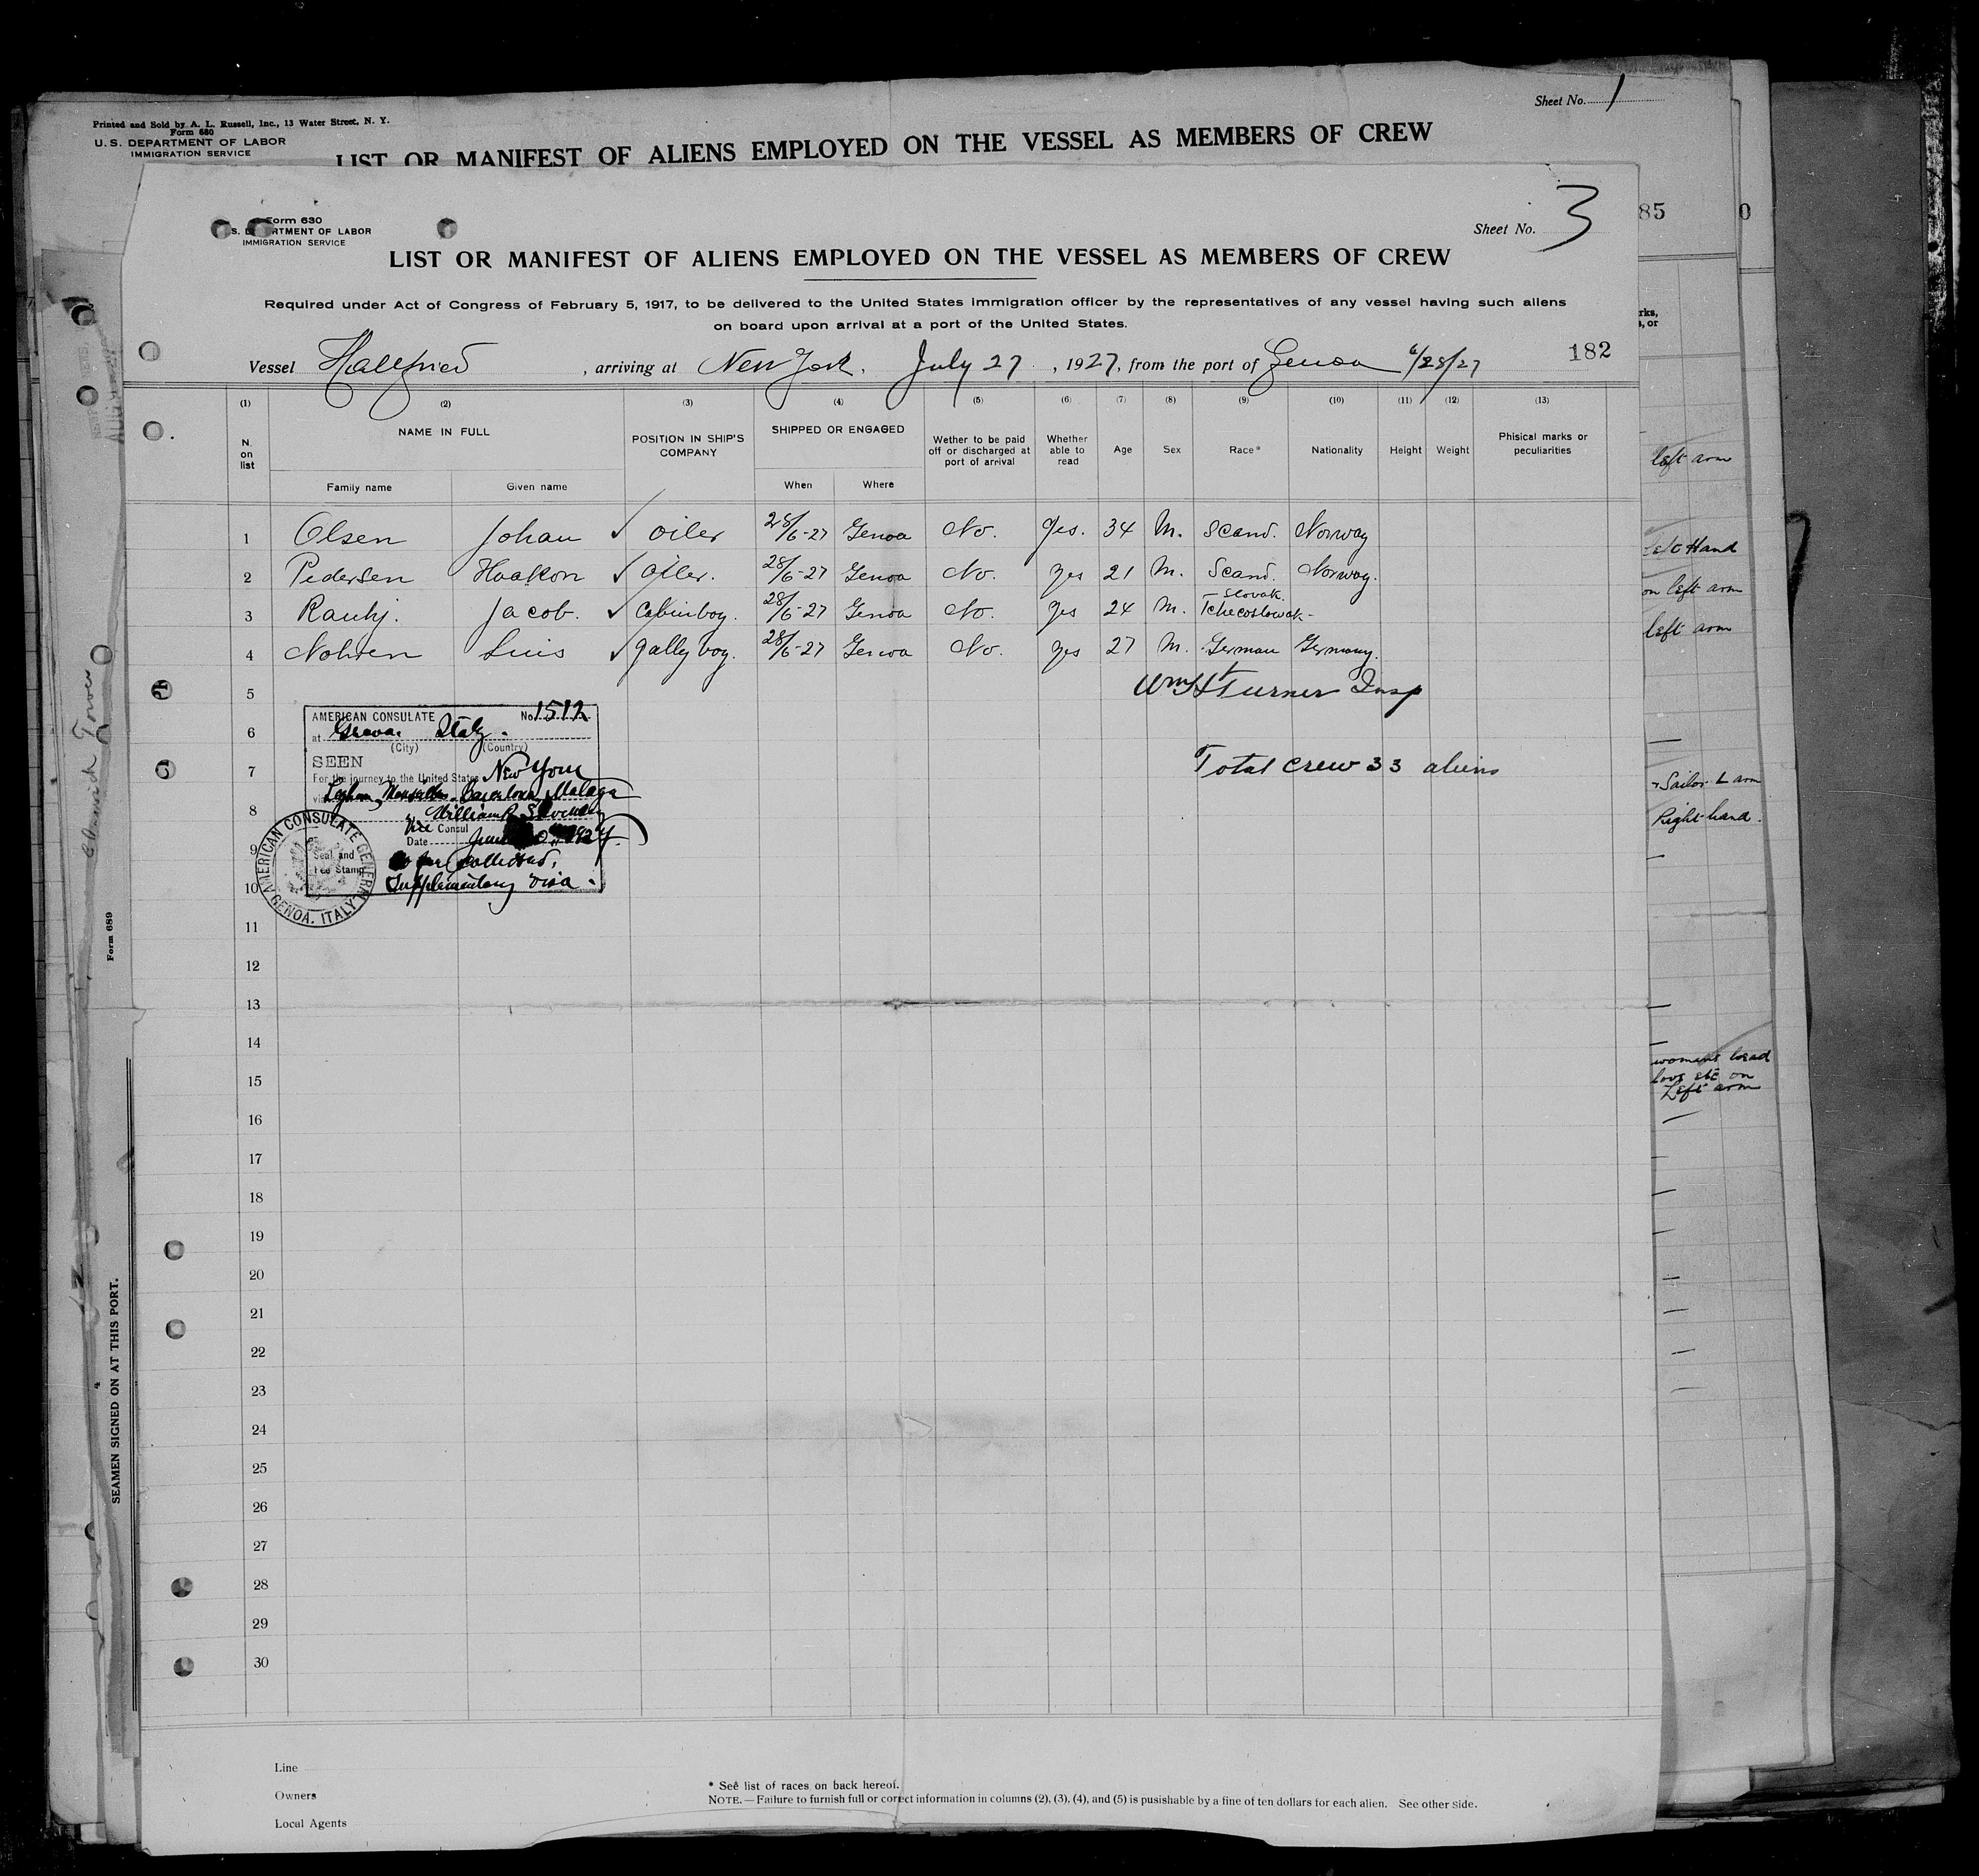 Sheet No. 1
Printed and Sold by A. L. Russell, Inc., 13 Water Street, N. Y.
Form 680
U. S. DEPARTMENT OF LABOR
IMMIGRATION SERVICE
LIST OR MANIFEST OF ALIENS EMPLOYED ON THE VESSEL AS MEMBERS OF CREW
85
0
Form 630
S. DEPARTMENT OF LABOR
IMMIGRATION SERVICE
Sheet No. 3
LIST OR MANIFEST OF ALIENS EMPLOYED ON THE VESSEL AS MEMBERS OF CREW
Required under Act of Congress of February 5, 1917, to be delivered to the United States immigration officer by the representatives of any vessel having such aliens
on board upon arrival at a port of the United States.
182
Vessel Hallfried, arriving at New York. July 27, 1927, from the port of Genoa 6/28/27
(1) (2) (3) (4) (5) (6) (7) (8) (9) (10) (11) (12) (13)
N. on list NAME IN FULL POSITION IN SHIP'S COMPANY SHIPPED OR ENGAGED Wether to be paid off or discharged at port of arrival Whether able to read Age Sex Race* Nationality Height Weight Phisical marks or peculiarities
Family name Given name When Where
1 Olsen Johan ✓ oiler 28/6-27 Genoa No. Yes. 34 M. Scand. Norway
2 Pedersen Haakon ✓ oiler. 28/6-27 Genoa No. Yes 21 M. Scand. Norway.
3 Rauhj. Jacob. ✓ Cabinboy. 28/6-27 Genoa No. Yes 24 M. Slovak. Tchecoslowak-
4 Nohren Luis ✓ gally boy. 28/6-27 Genoa No. Yes 27 M. German Germany.
5 Wm H Turner Insp
6
7 Total crew 33 aliens
8
9
10
11
12
13
14
15
16
17
18
19
20
21
22
23
24
25
26
27
28
29
30
AMERICAN CONSULATE No. 1512
at Genoa Italy.
(City) (Country)
SEEN
For the journey to the United States New York
via Leghorn, Marseilles, Barcelona, Malaga
William
Vice Consul
Date June
Seal and
Fee Stamp
No fee collected,
Supplementary visa.
AMERICAN CONSULATE GENERAL
GENOA. ITALY
left arm
left Hand
on left arm
left arm
Sailor L arm
Right hand.
womans head
love etc on
Left arm
Form 689
SEAMEN SIGNED ON AT THIS PORT.
Line
Owners
Local Agents
* See list of races on back hereof.
NOTE. — Failure to furnish full or corect information in columns (2), (3), (4), and (5) is pusishable by a fine of ten dollars for each alien. See other side.